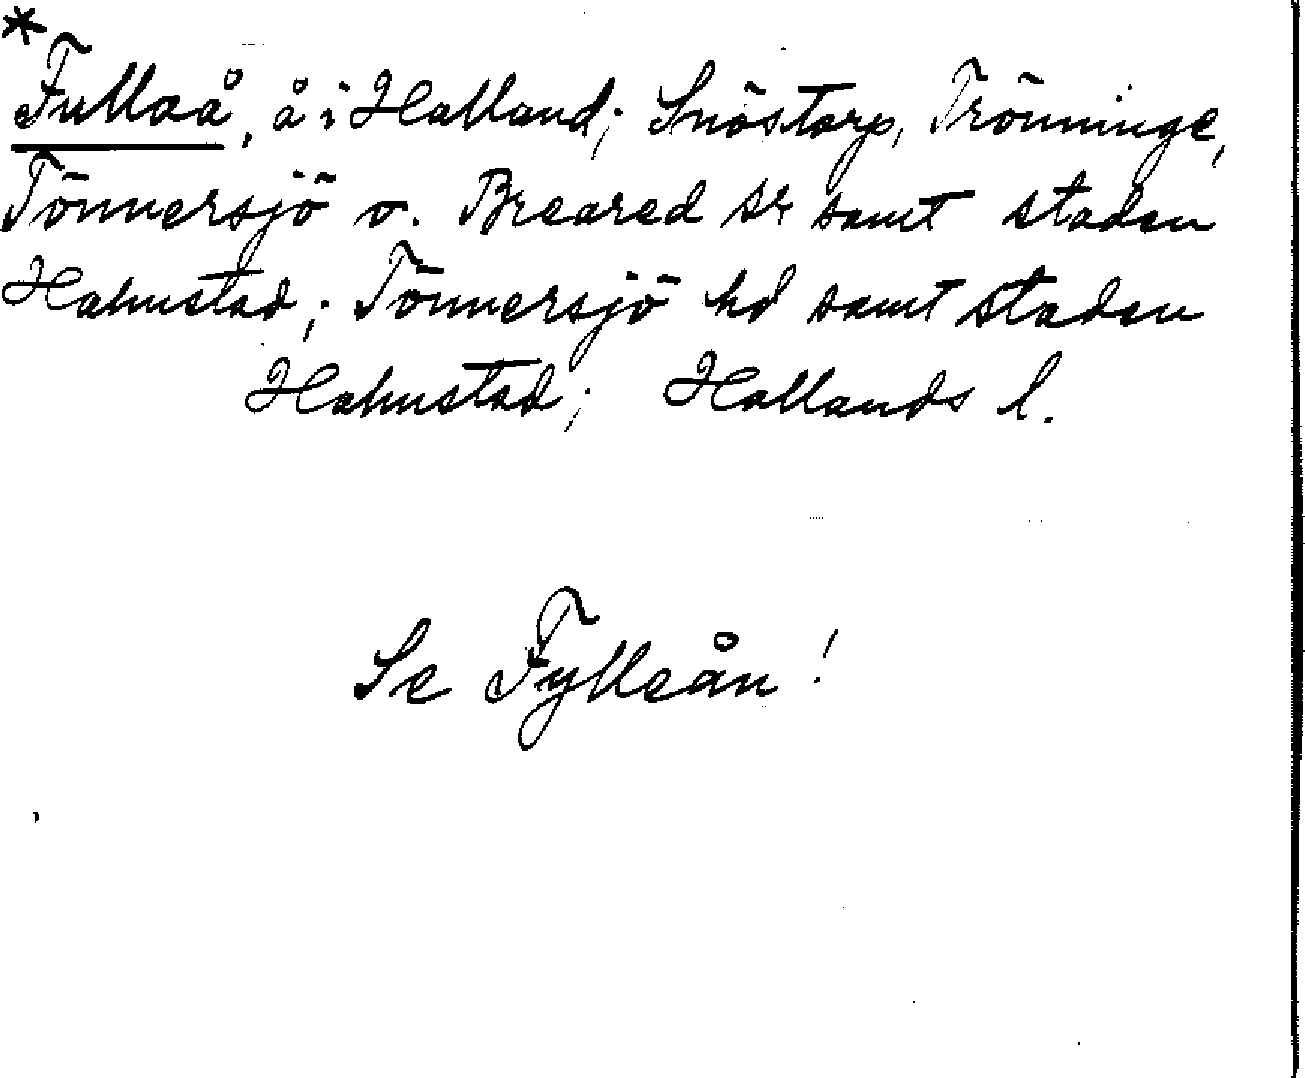 *
Fullaå, å i Halland; Snöstorp, Trönninge,
Tönnersjö o. Breared sr samt staden
Halmstad; Tönnersjö hd samt staden
Halmstad; Hallands l.
Se Fylleån!